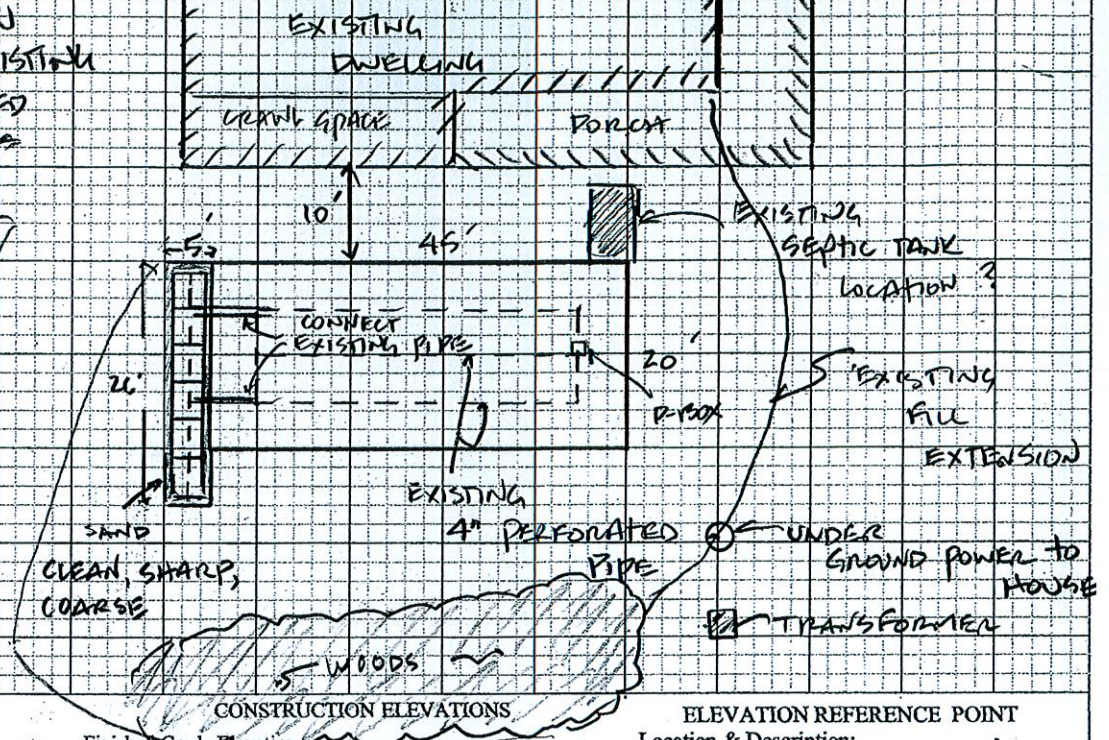 ISTING
EXISTING
DWELLING
CRAWL SPACE
PORCH
10'
5'
45'
EXISTING
SEPTIC TANK
LOCATION ?
CONNECT
EXISTING PIPE
20'
26'
D-BOX
EXISTING
FILL
EXTENSION
EXISTING
4" PERFORATED
PIPE
SAND
CLEAN, SHARP,
COARSE
UNDER
GROUND POWER to
HOUSE
TRANSFORMER
WOODS
CONSTRUCTION ELEVATIONS
ELEVATION REFERENCE POINT
Location & Description: